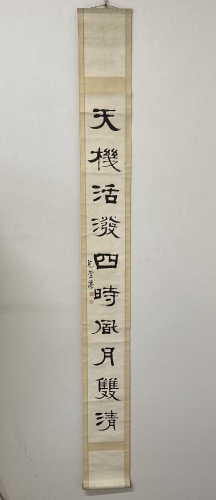 天機活潑四時風月雙清